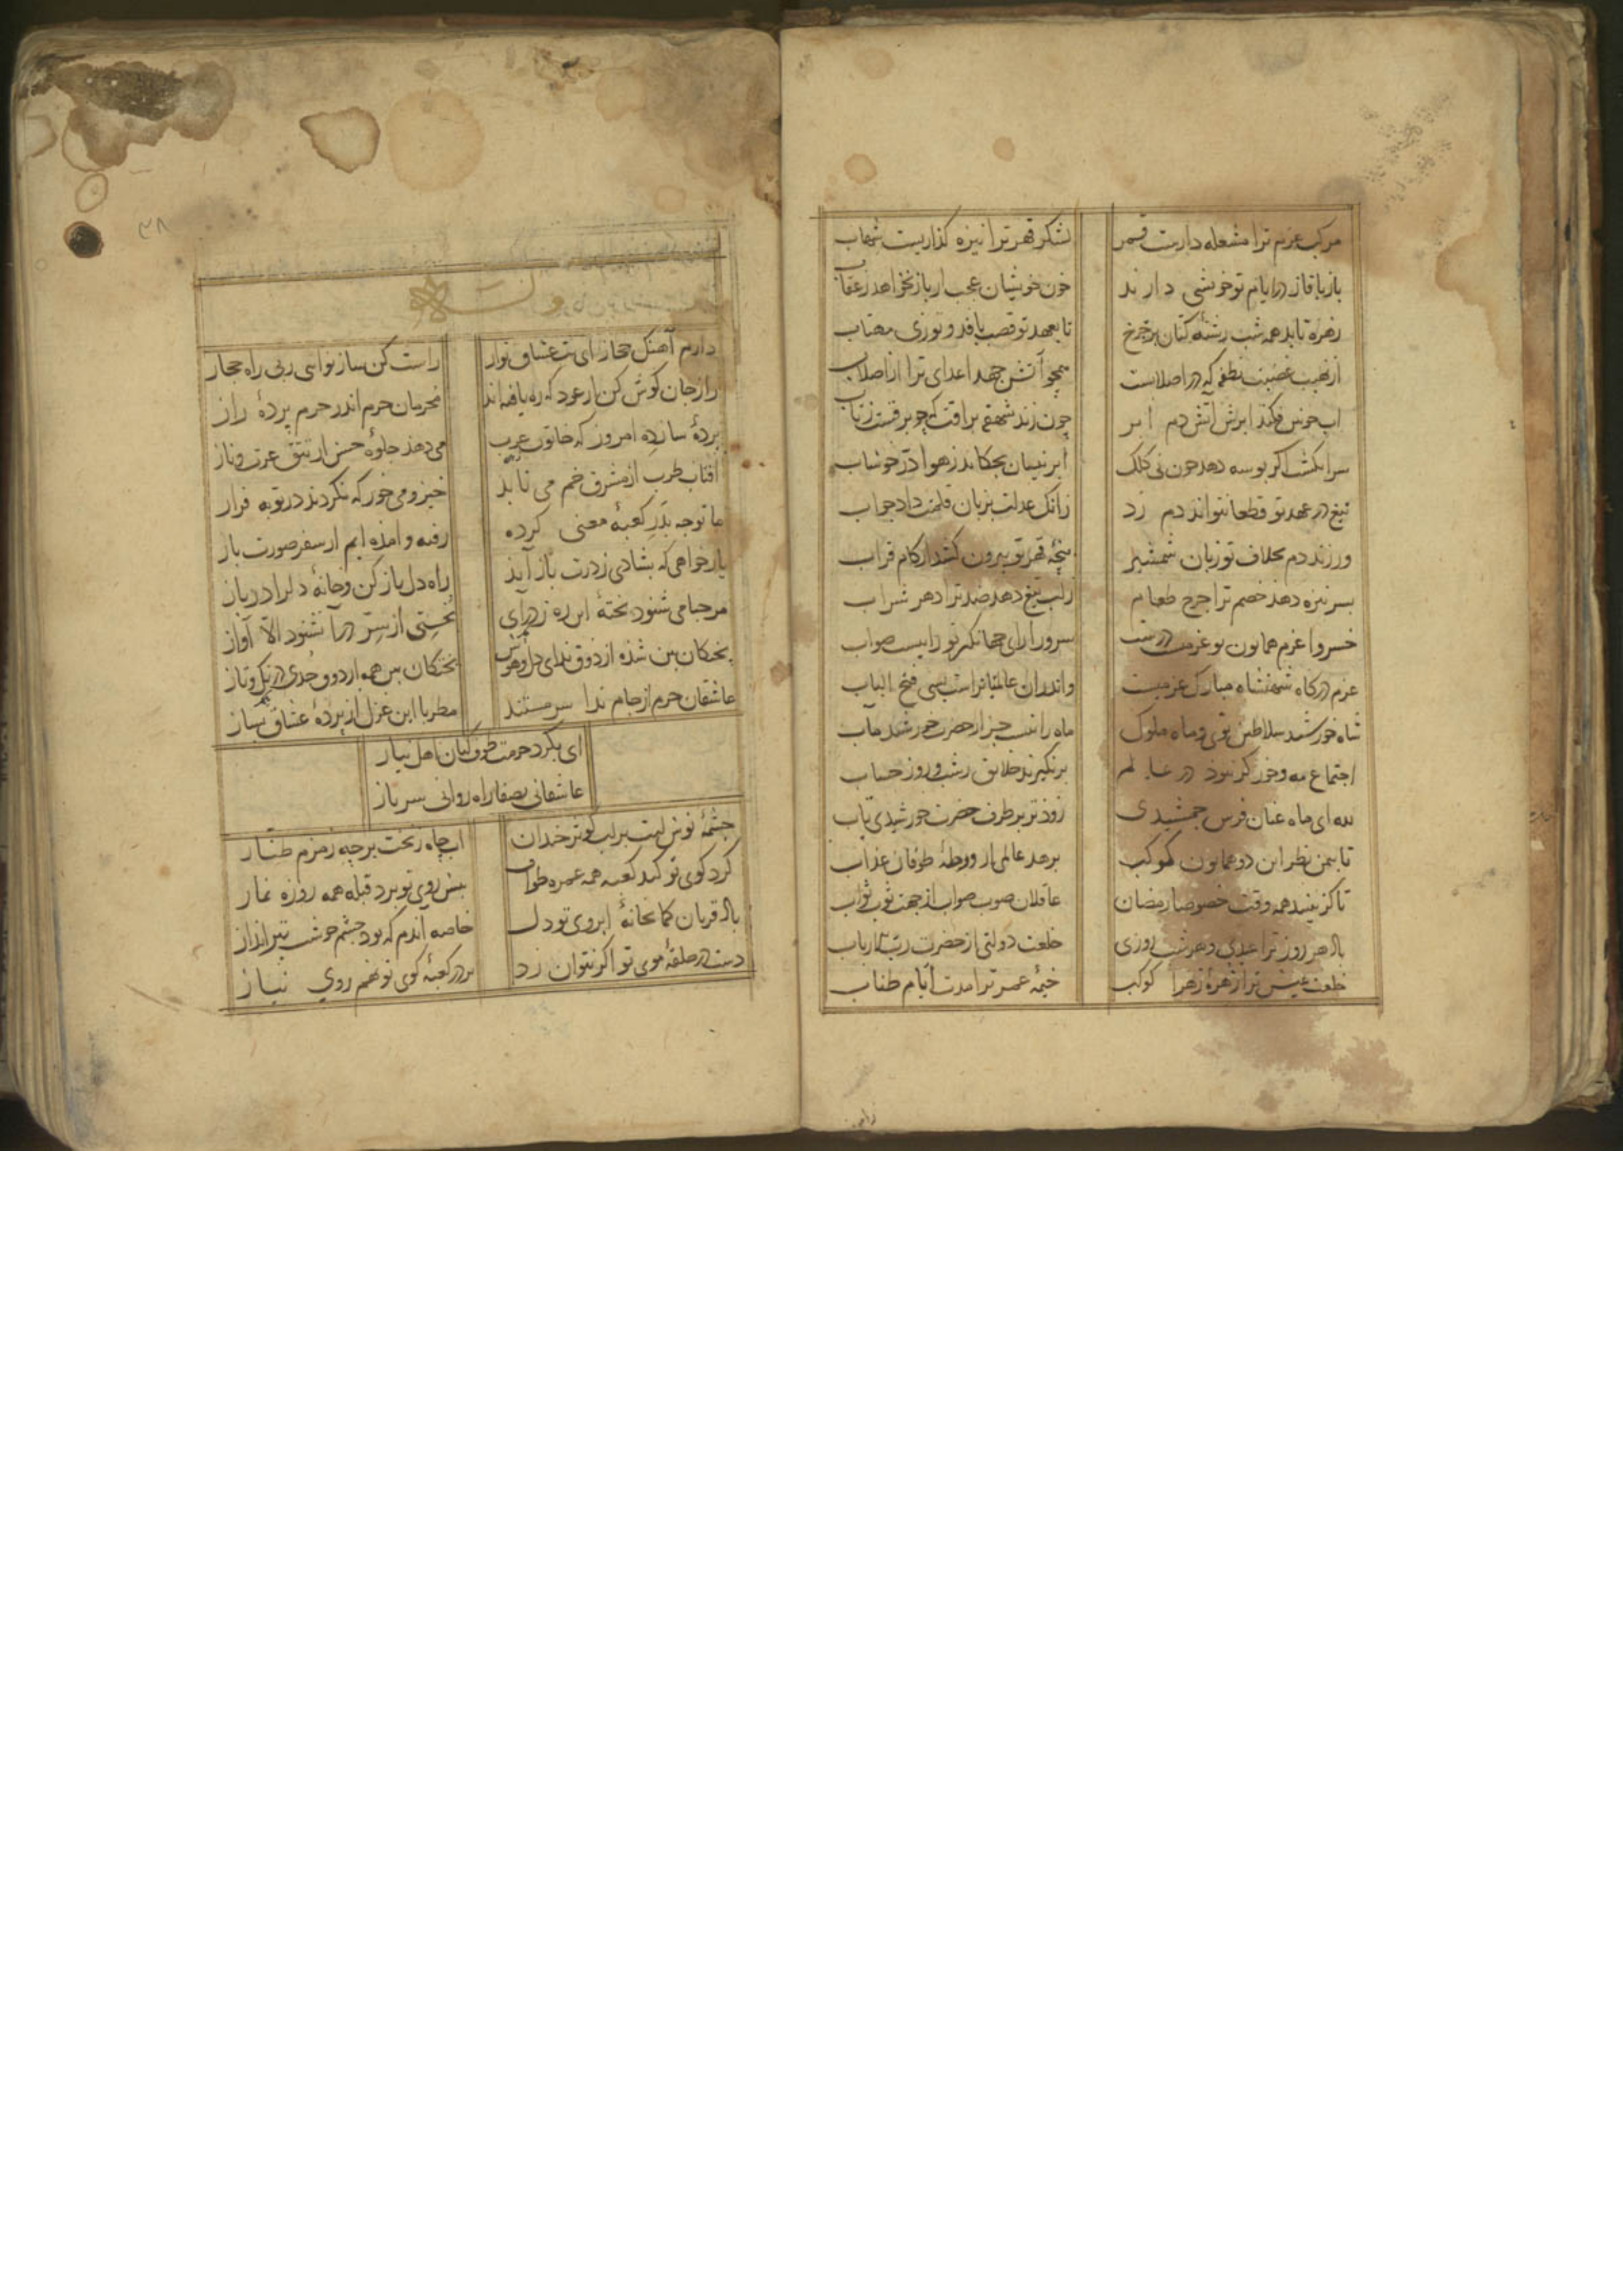 مرکب عزم ترا مشعله داریست قمر
لشکر قهر ترا نیزه کذاریست شهاب
باز با قاز در ایام تو خویشی دارند
خون خویشان عجب ار باز نخواهد ز عقاب
زهره تابد همه شب رشته کتان بر چرخ
تا بعهد تو قصب بافد و توزی مهتاب
از نهیب غضبت نطفه که در اصلابست
همچو آتش جهد اعدای ترا از اصلاب
اب خوش فکند ابرش اتش دم ابر
چون زند شهقه براقت که چو برقست ز تاب
سر انکشت اکر بوسه دهد چون نی کلک
ابر نیسان بچکاند ز هوا در خوشاب
تیغ در عهد تو قطعا نتواند دم زد
زانک عدلت بزبان قلمت داد جواب
ور زند دم بخلاف تو زبان شمشیر
پنجه قهر تو بیرون کشد از کام قراب
بسر نیزه دهد خصم ترا جرح طعام
زلب تیغ دهد ضد ترا دهر شراب
خسروا عزم همایون تو عزمیست درست
سرورا رای جهانکیر تو راییست صواب
عزم درکاه شهنشاه مبارک عزمیست
واندران عالمیانراست بسی فتح الباب
شاه خورشید سلاطین توی و ماه ملوک
ماه را نیست جز از حضرت خورشید مآب
اجتماع مه و خور کر نبود در عالم
برنکیرند خلایق ز شب و روز حساب
بده ای ماه عنان فرس جمشیدی
زودتر بر طرف حضرت خورشیدی تاب
تا بیمن نظر این دو همایون کوکب
برهد عالمی از ورطه طوفان عذاب
تا کزینند همه وقت خصوصا رمضان
عاقلان صوب صواب از جهت ثوب ثواب
باد هر روز ترا عیدی و هر شب روزی
خلعت دولتی از حضرت رب الارباب
خلعت عیش ترا زهره زهرا کوکب
خیمه عمر ترا مدت ایام طناب
۳۸
وله
دارم آهنک حجاز ای بت عشاق نواز
راست کن ساز نوایی ز پی راه حجاز
راز جان کوش کن از عود که ره یافته اند
محرمان حرم اندر حرم پرده راز
پرده سازده امروز که خاتون عرب
می دهد جلوه حسن از تتق عزت و ناز
افتاب طرب از مشرق خم می تابد
خیز و می خور که نکردند در توبه فراز
ما توجه بدر کعبه معنی کرده
رفته و امده ایم از سفر صورت باز
یار خواهی که بشادی ز درت باز آید
راه دل باز کن و خانه دل را در باز
مرحبا می شنود پخته این ره ز درای
نخستی از سر در آ نشنود الا آواز
پختکان بین شده از ذوق ندای دل و هوش
بختکان بین همه از ذوق حدی در تک و تاز
عاشقان حرم از جام ندا سرمستند
مطربا این غزل از پرده عشاق بساز
ای بکرد حرمت طوف کنان اهل نیاز
عاشقانی بصفا راه روانی سرباز
چشمه نوش لبت بر لب کوثر خندان
اب چاه زنخت بر چه زمزم طناز
کرد کوی تو کند کعبه همه عمره طواف
پیش روی تو برد قبله همه روزه نماز
باد قربان کمانخانه ابروی تو دل
خاصه اندم که بود چشم خوشت تیرانداز
دست در حلقه موی تو اکر نتوان زد
بر در کعبه کوی تو نهم روی نیاز